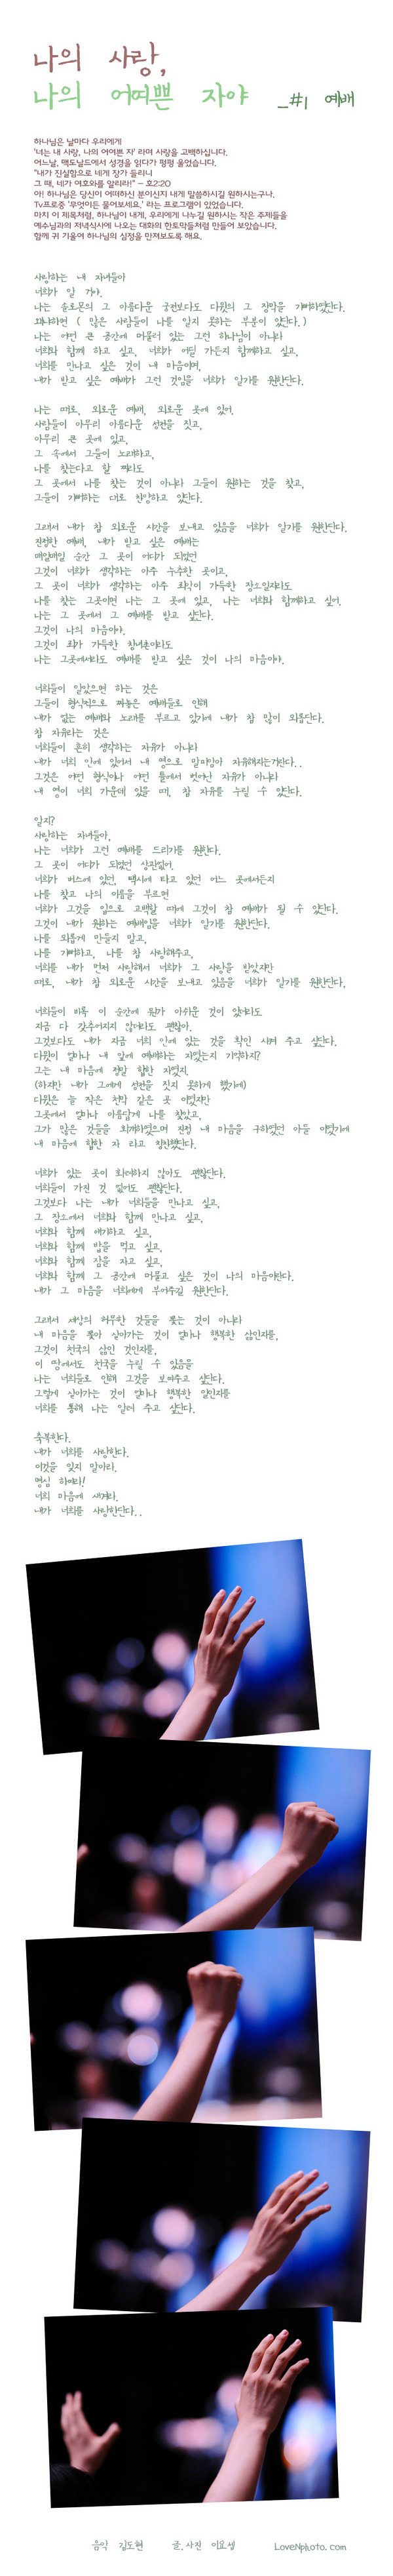 나의 사랑,
나의 어여쁜 자야 _#1 예배
하나님은 날마다 우리에게
'너는 내 사랑, 나의 어여쁜 자' 라며 사랑을 고백하십니다.
어느날, 맥도날드에서 성경을 읽다가 펑펑 울었습니다.
"내가 진실함으로 네게 장가 들리니
그 때, 네가 여호와를 알리라!" - 호2:20
아! 하나님은 당신이 어떠하신 분이신지 내게 말씀하시길 원하시는구나.
Tv프로중 '무엇이든 물어보세요.' 라는 프로그램이 있었습니다.
마치 이 제목처럼, 하나님이 내게, 우리에게 나누길 원하시는 작은 주제들을
예수님과의 저녁식사에 나오는 대화의 한토막들처럼 만들어 보았습니다.
함께 귀 기울여 하나님의 심정을 만져보도록 해요.
사랑하는 내 자녀들아
너희가 알 거야.
나는 솔로몬의 그 아름다운 궁전보다도 다윗의 그 장막을 기뻐하였단다.
왜냐하면 ( 많은 사람들이 나를 알지 못하는 부분이 있단다.)
나는 어떤 큰 공간에 머물러 있는 그런 하나님이 아니라
너희와 함께 하고 싶고, 너희가 어딜 가든지 함께하고 싶고,
너희를 만나고 싶은 것이 내 마음이며,
내가 받고 싶은 예배가 그런 것임을 너희가 알기를 원한단다.
나는 때로, 외로운 예배, 외로운 곳에 있어.
사람들이 아무리 아름다운 성전을 짓고,
아무리 큰 곳에 있고,
그 속에서 그들이 노래하고,
나를 찾는다고 할 때라도
그 곳에서 나를 찾는 것이 아니라 그들이 원하는 것을 찾고,
그들이 기뻐하는 대로 찬양하고 있단다.
그래서 내가 참 외로운 시간을 보내고 있음을 너희가 알기를 원한단다.
진정한 예배, 내가 받고 싶은 예배는
매일매일 순간 그 곳이 어디가 되었던
그것이 너희가 생각하는 아주 누추한 곳이고,
그 곳이 너희가 생각하는 아주 죄악이 가득한 장소일지라도
나를 찾는 그곳이면 나는 그 곳에 있고, 나는 너희와 함께하고 싶어.
나는 그 곳에서 그 예배를 받고 싶단다.
그것이 나의 마음이야.
그것이 죄가 가득한 창녀촌이라도
나는 그곳에서라도 예배를 받고 싶은 것이 나의 마음이야.
너희들이 알았으면 하는 것은
그들이 형식적으로 짜놓은 예배들로 인해
내가 없는 예배와 노래를 부르고 있기에 내가 참 많이 외롭단다.
참 자유라는 것은
너희들이 흔히 생각하는 자유가 아니라
내가 너희 안에 있어서 내 영으로 말미암아 자유해지는거란다..
그것은 어떤 형식이나 어떤 틀에서 벗어난 자유가 아니라
내 영이 너희 가운데 있을 때, 참 자유를 누릴 수 있단다.
알지?
사랑하는 자녀들아,
나는 너희가 그런 예배를 드리기를 원한다.
그 곳이 어디가 되었던 상관없어.
너희가 버스에 있던, 택시에 타고 있던 어느 곳에서든지
나를 찾고 나의 이름을 부르면
너희가 그것을 입으로 고백할 때에 그것이 참 예배가 될 수 있단다.
그것이 내가 원하는 예배임을 너희가 알기를 원한단다.
나를 외롭게 만들지 말고,
나를 기뻐하고, 나를 참 사랑해주고,
너희를 내가 먼저 사랑해서 너희가 그 사랑을 받았지만
때로, 내가 참 외로운 시간을 보내고 있음을 너희가 알기를 원한단다.
너희들이 비록 이 순간에 뭔가 아쉬운 것이 있더라도
지금 다 갖추어지지 않더라도 괜찮아.
그것보다도 내가 지금 너희 안에 있는 것을 확인 시켜 주고 싶단다.
다윗이 얼마나 내 앞에 예배하는 자였는지 기억하지?
그는 내 마음에 정말 합한 자였지.
(하지만 내가 그에게 성전을 짓지 못하게 했기에)
다윗은 늘 작은 천막 같은 곳 이였지만
그곳에서 얼마나 아름답게 나를 찾았고,
그가 많은 것들을 회개하였으며 진정 내 마음을 구하였던 아들 이였기에
내 마음에 합한 자 라고 칭찬했단다.
너희가 있는 곳이 화려하지 않아도 괜찮단다.
너희들이 가진 것 없어도 괜찮단다.
그것보다 나는 내가 너희들을 만나고 싶고,
그 장소에서 너희와 함께 만나고 싶고,
너희와 함께 얘기하고 싶고,
너희와 함께 밥을 먹고 싶고,
너희와 함께 잠을 자고 싶고,
너희와 함께 그 공간에 머물고 싶은 것이 나의 마음이란다.
내가 그 마음을 너희에게 부어주길 원한단다.
그래서 세상의 허무한 것들을 쫓는 것이 아니라
내 마음을 쫓아 살아가는 것이 얼마나 행복한 삶인지를,
그것이 천국의 삶인 것인지를,
이 땅에서도 천국을 누릴 수 있음을
나는 너희들로 인해 그것을 보여주고 싶단다.
그렇게 살아가는 것이 얼마나 행복한 일인지를
너희를 통해 나는 알려 주고 싶단다.
축복한다.
내가 너희를 사랑한다.
이것을 잊지 말아라.
명심 하여라!
너희 마음에 새겨라.
내가 너희를 사랑한단다..
음악 김도현 글.사진 이요셉 LoveNphoto.com